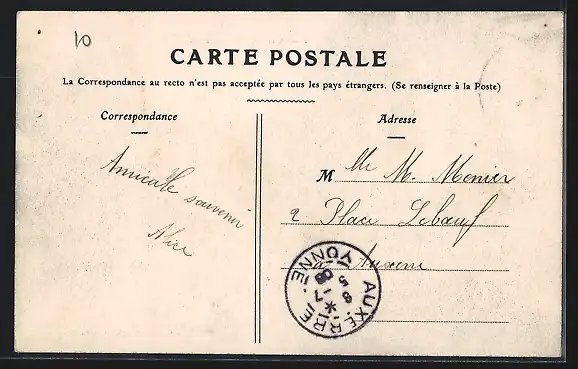 10
CARTE POSTALE
La Correspondance au recto n'est pas acceptée par tous les pays étrangers. (Se renseigner à la Poste)
Correspondance
Amicale souvenir
Alice
Adresse
M Mr M. Menier
2 Place Lebœuf
à Auxerre
AUXERRE YONNE